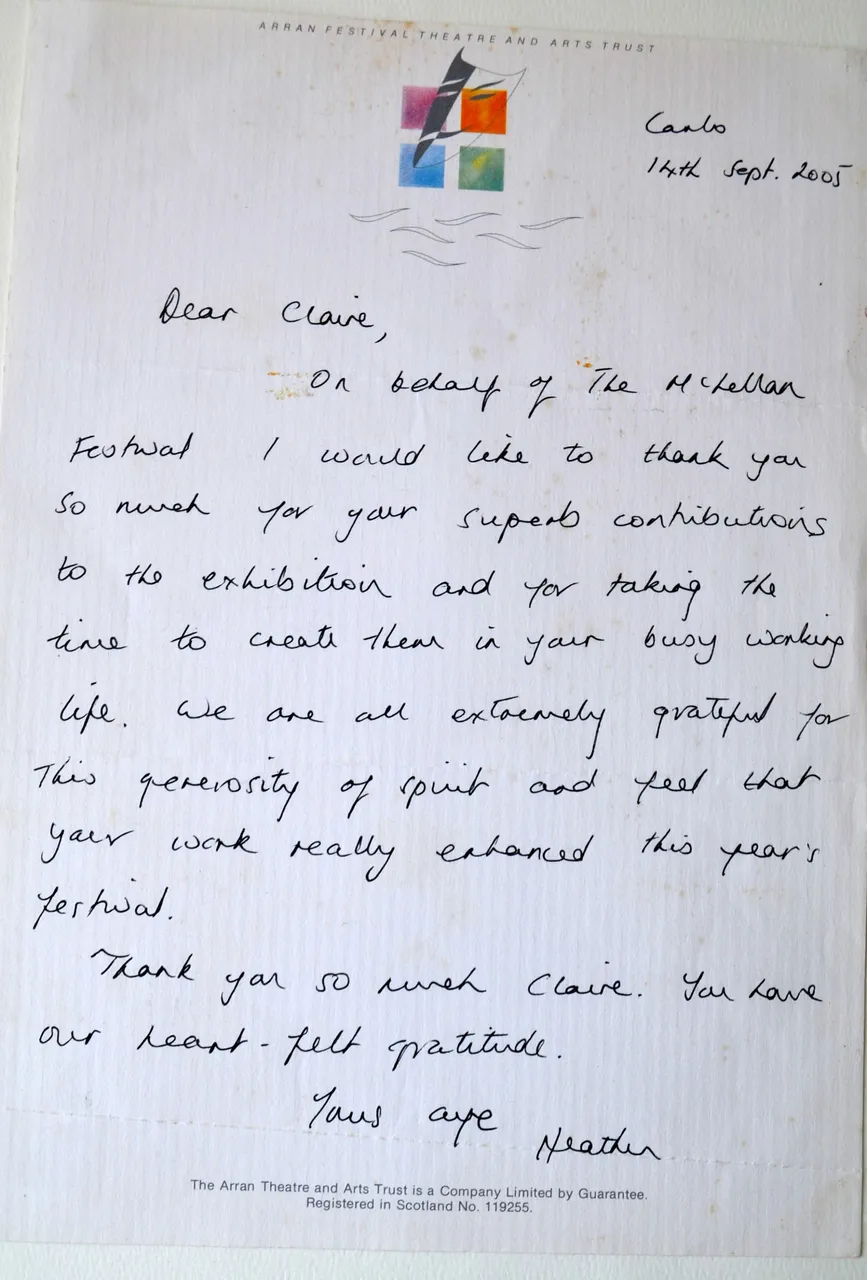 ARRAN FESTIVAL THEATRE AND ARTS TRUST
14th Sept. 2005
Dear Claire,
On behalf of The McLellan
Festival I would like to thank you
so much for your superb contributions
to the exhibition and for taking the
time to create them in your busy working
life. We are all extremely grateful for
This generosity of spirit and feel that
your work really enhanced this year's
festival.
Thank you so much Claire. You have
our heart-felt gratitude.
Yours aye
Heather
The Arran Theatre and Arts Trust is a Company Limited by Guarantee.
Registered in Scotland No. 119255.